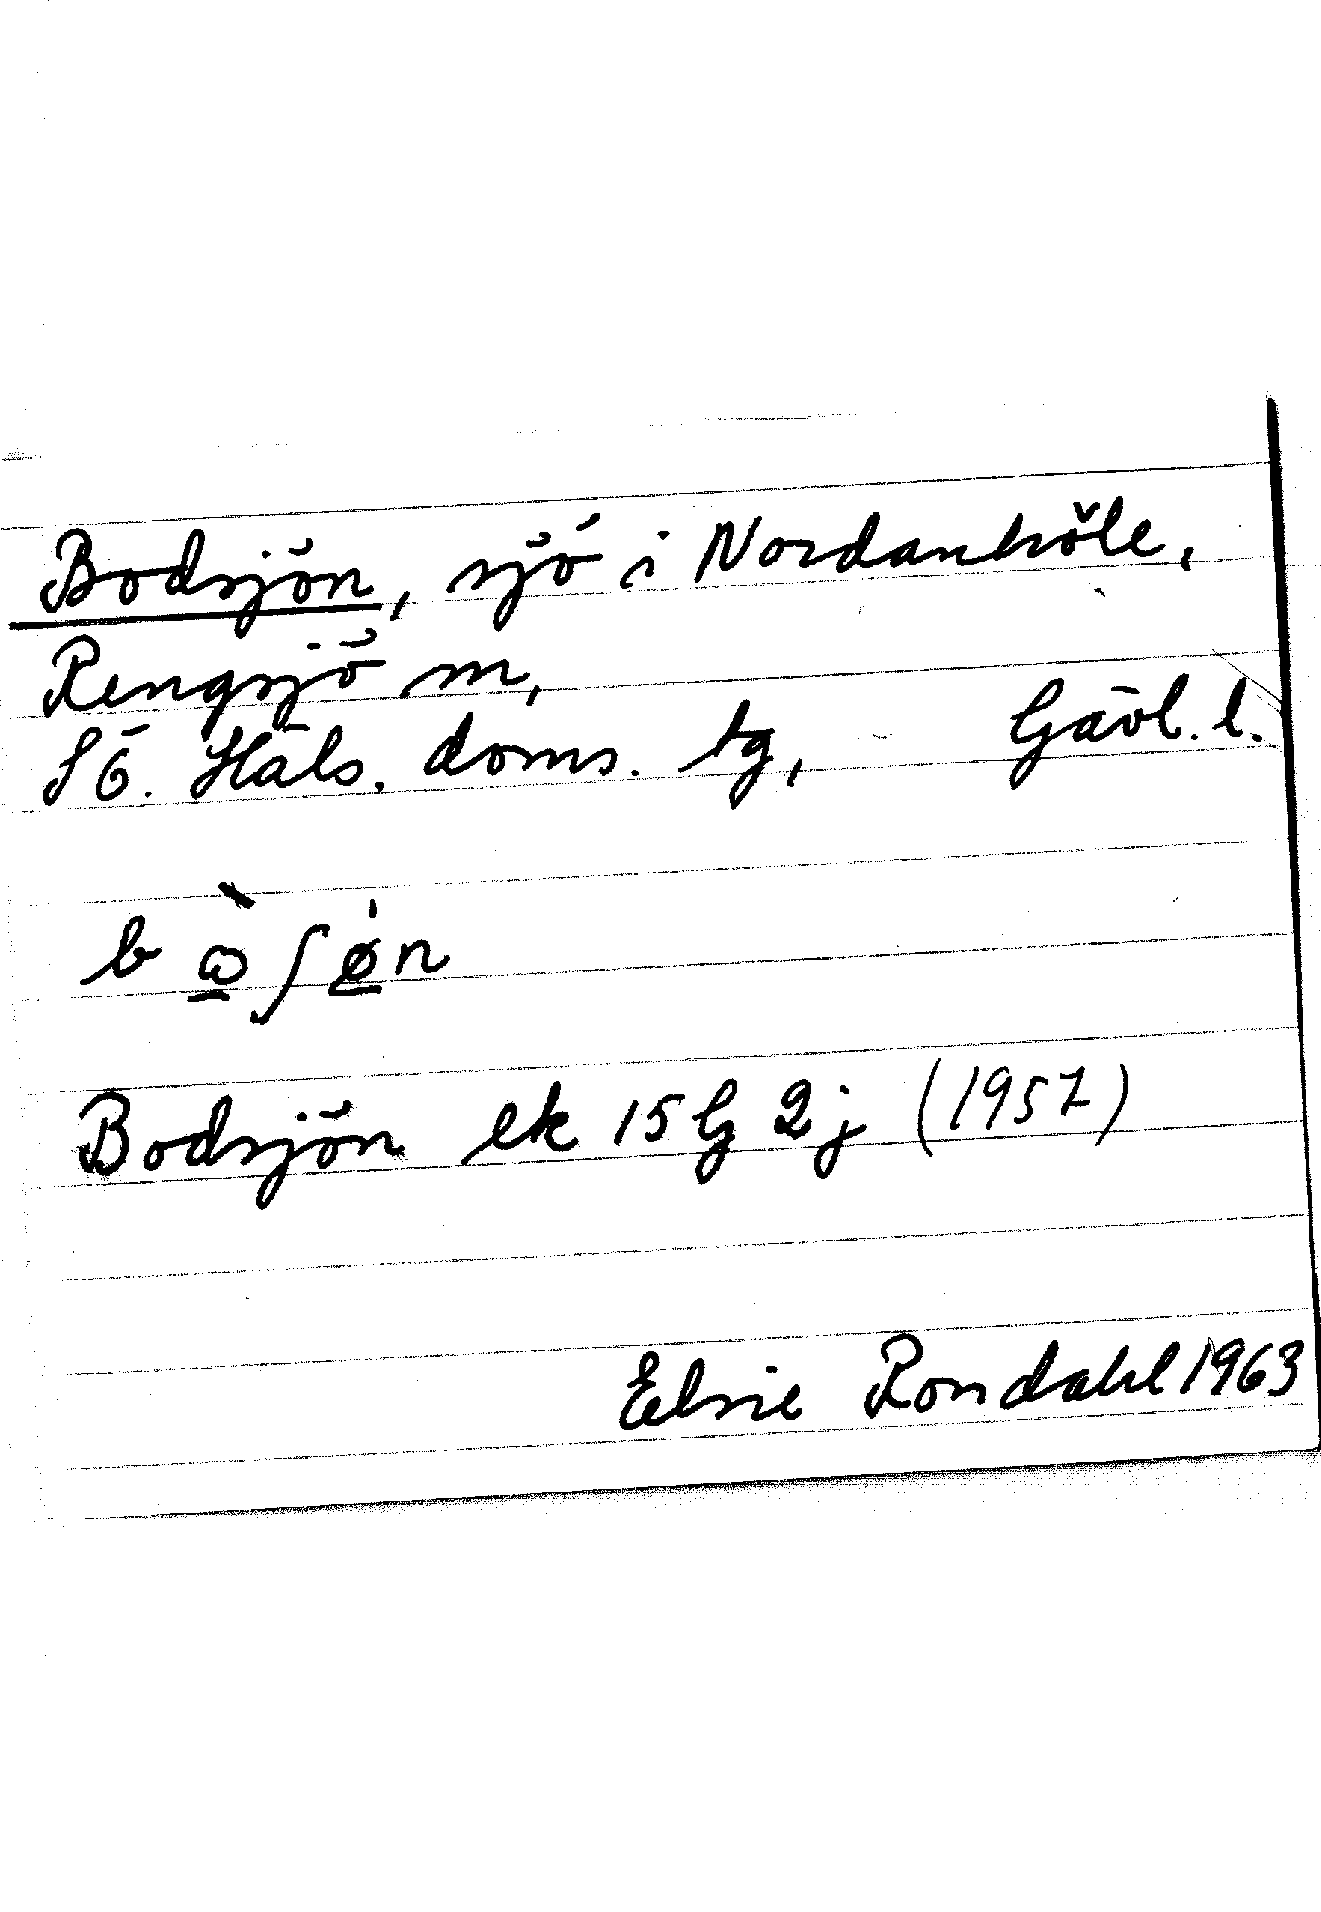 Bodsjön, sjö i Nordanhöle,
Rengsjö sn,
SÖ. Häls. doms. tg, Gävl. l.
b ɷ̀ ʃ ø̇ n
Bodsjön ek 15G 2j (1957)
Elsie Rondahl 1963